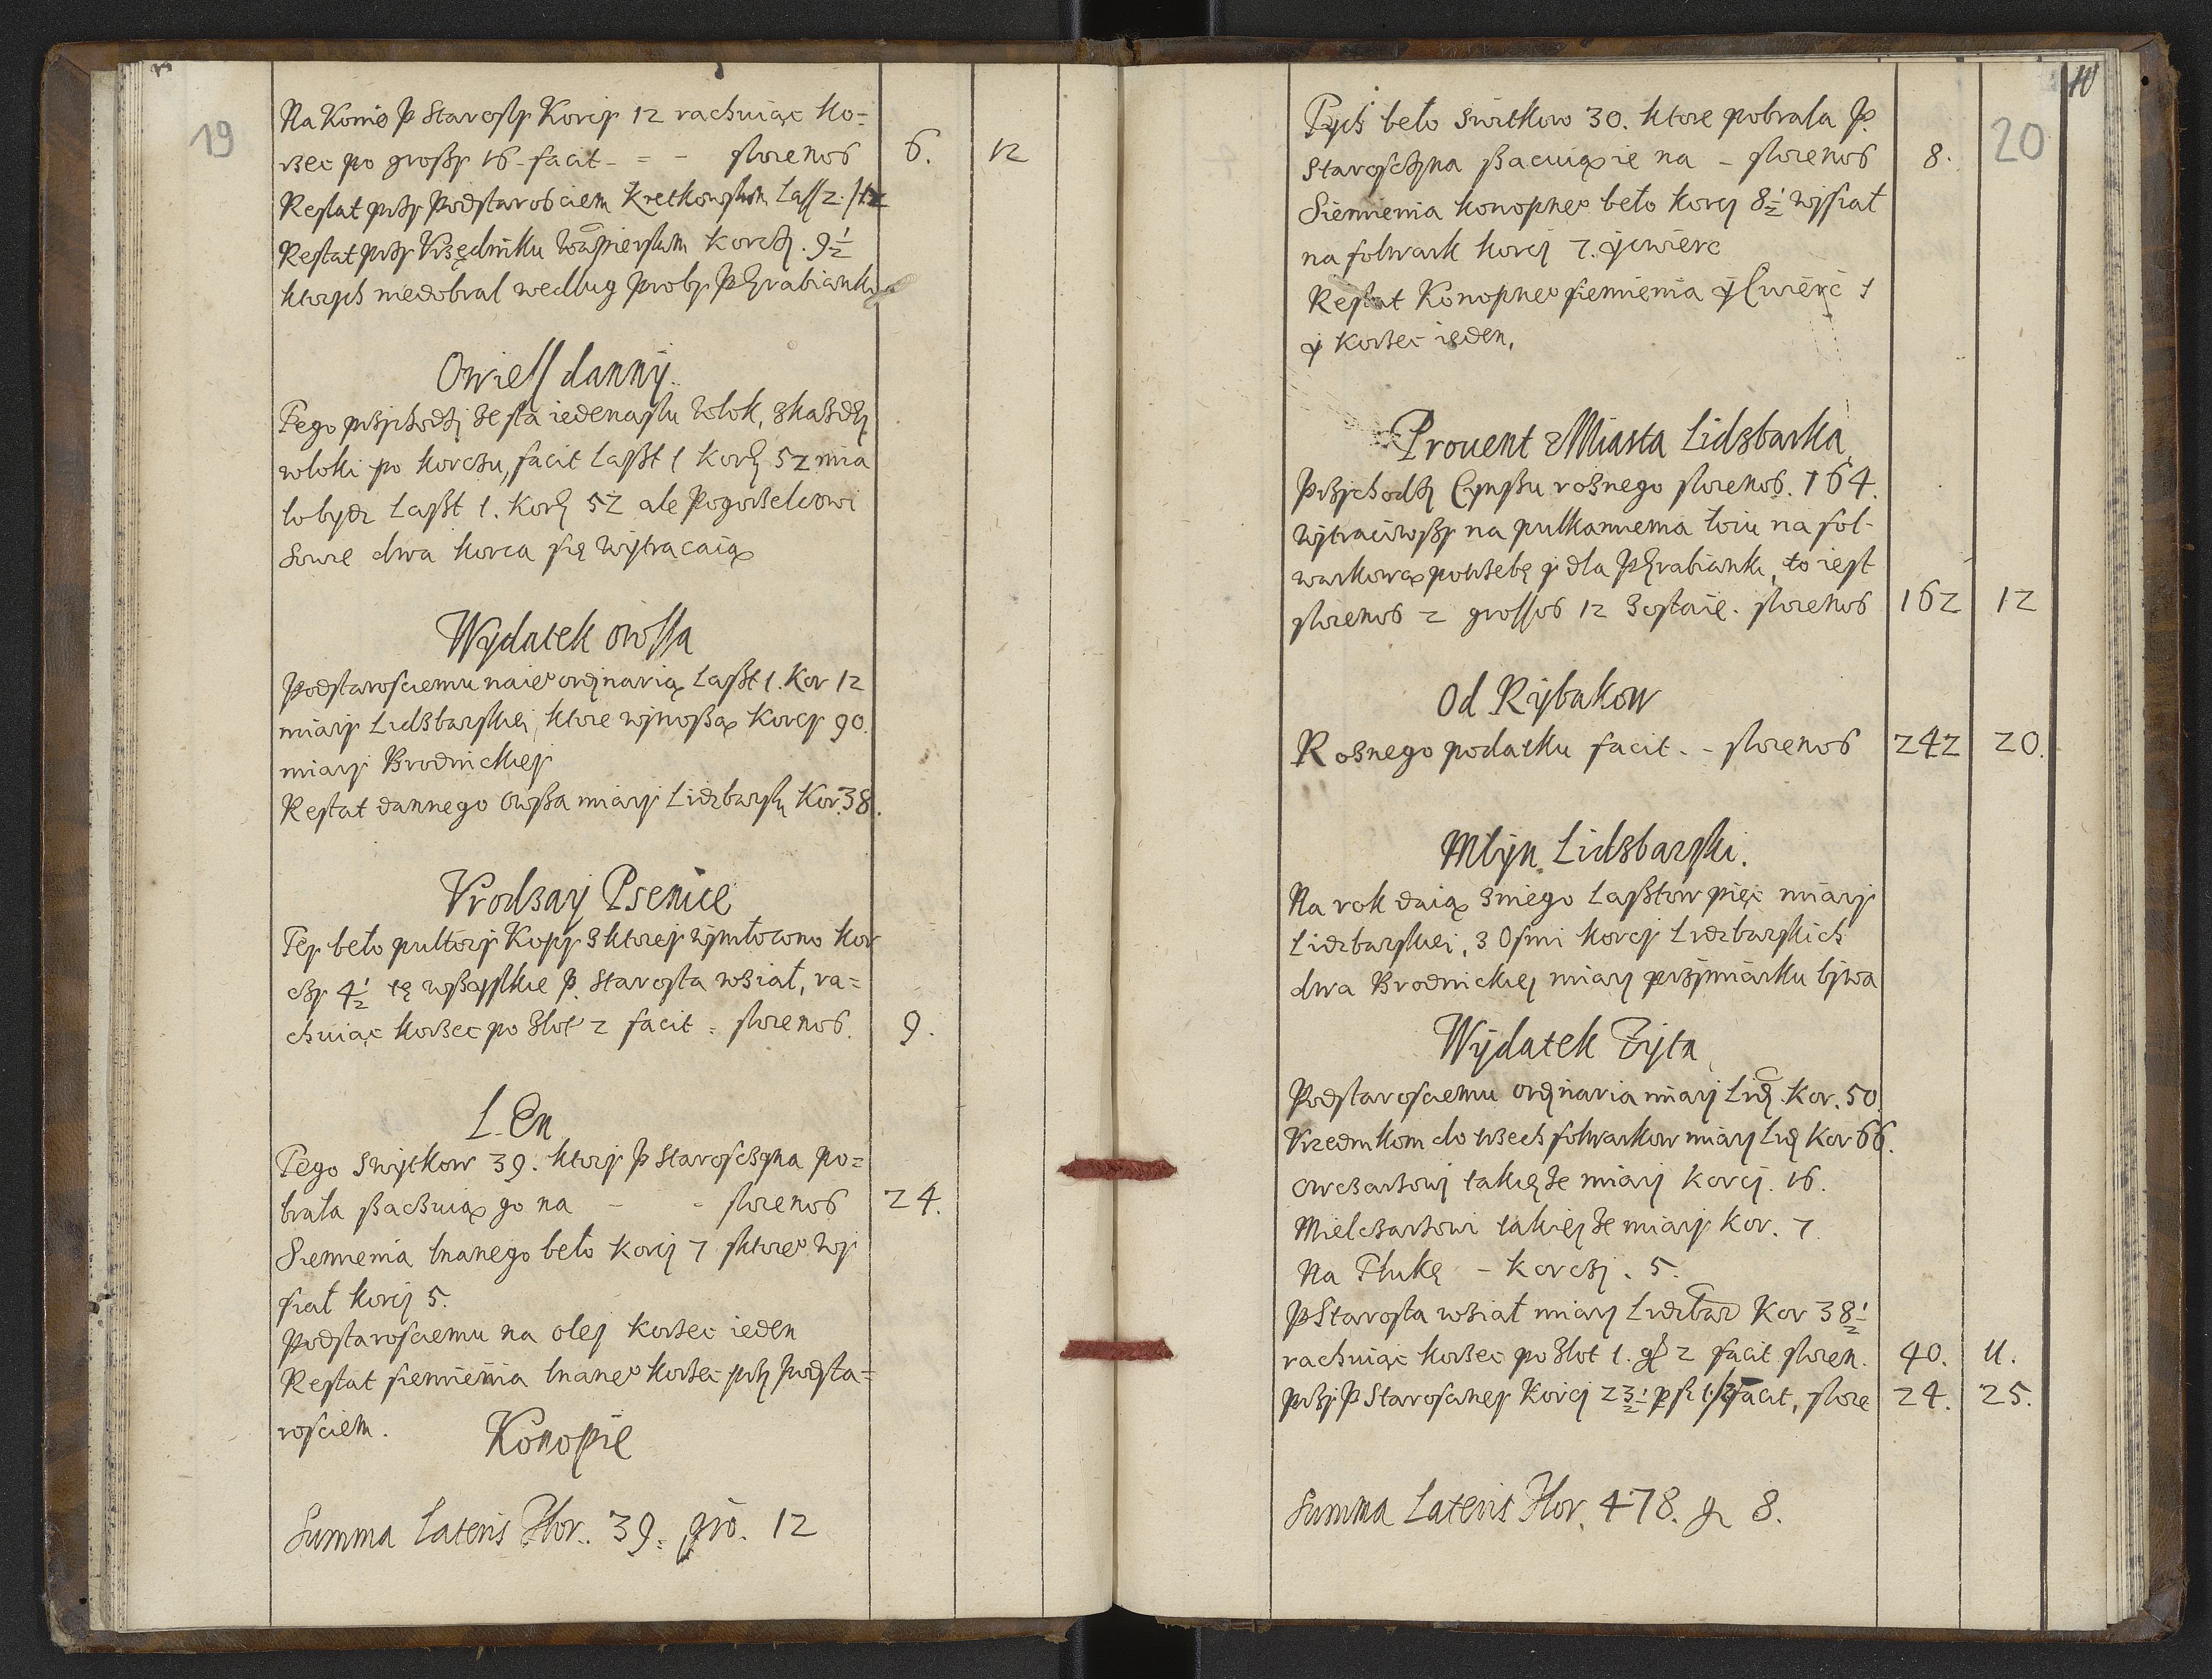 19
Na Konie P Starosty Korcy 12 rachuiąc Ko-
rzec po groszy 16 - facit - = - florenos 6. 12
Restat przy Podstarosciem Kretkowskim Lasz 2.
Restat przy Vrzędniku korczy. 9 1/2
ktorych niedobral według proby P Hrabianki
Owiess danny.
Tego przychodzi ze sta iedenastu Wlok, z kazdey
wloki po korczu, facit Laszt 1 Korcy 52 mia
lobydz Laszt 1. Korcy 52 ale Pogorzelcowi
dwa korca się wytracaią
Wydatek owssa
Podstarosciemu na ieo ordynarią Laszt 1. Kor 12
miary Lidzbarskiei, ktore wynoszą Korcy 90.
miary Brodnickiey
Restat dannego Owsza miary Lidzbarsky Kor. 38.
Vrodzay Psenice
Tey beło pultory Kopy z ktorey wymłocono kor
czy 4 1/2 tę wszystkie P. Starosta wział, ra=
chuiąc korzec po złot 2 facit = florenos. 9.
LEn
Tego Swytkow 39. ktory P Starosczyna po=
brała szaczuią go na - - florenos 24.
Siemienia lnanego beło korcy 7 sktoreo wy
siał korcy 5.
Podstarosciemu na oley korzec ieden
Restat siemienia lnaneo korzec przy Podsta=
rosciem.
Konopie
Summa Lateris Flor. 39. gro. 12
20
Tych beło Switkow 30. ktore pobrała P.
Staroschyna szacuią ie na - florenos 8.
Siemienia konopneo beło korcy 8 1/2 wysiał
na folwark korcy 7. y cwierc
Restat Konopneo siemienia y Cwierć 1
y korzec ieden.
Prouent z Miasta Lidzbarka
Przychodzy Cynszu roznego florenos. 164.
Wytraciwszy na pulkamienia łoiu na fol-
warkową potrzebę y dla P Hrabianki, to iest
florenos 2 grossos 12 Zostaie. florenos 162 12
Od Rybakow
Roznego podatku facit. - florenos 242 20.
Młyn Lidzbarski.
Na rok daią z niego Lasztow pięc miary
Lidzbarskiei, z Osmi korcy Lidzbarskich
dwa Brodnickiey miary przymiarku bywa
Wydatek Zyta
Podstarosciemu ordynaria miary Lid. Kor. 50.
Vrzednikom do trzech folwarkow miary Lid Kor 66.
Owczarzowi takieyze miary Korcy. 16.
Mielcarzowi takieyze miary Kor. 7
Na Tłukę - Korczy. 5.
P Starosta wział miary Lidzbar Kor 38 1/2
rachuiąc korzec po złot 1. gr 2 facit floren. 40. 11.
przy P Starosciney Korcy 23 1/2 facit, flore 24. 25.
Summa Lateris Flor. 478. gr 8.